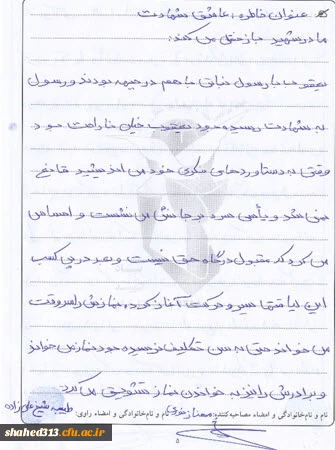 عنوان خاطره: عاشق شهادت
مادر شهید بازگو می کند:
یعقوب با رسول نباتی با هم در جبهه بودند و رسول
به شهادت رسیده بود یعقوب خیلی ناراحت بود
وقتی به دستاوردهای فکری خود می اندیشید قانع
نمی شد و یأس سرد بر جانش می نشست و احساس
می کرد که مقبول درگاه حق نیست و بعد در پی کسب
این لیاقتها سیر و حرکت آغاز کرد، نمازش را سر وقت
می خواند حتی به سن تکلیف نرسیده بود نماز می خواند
و برادرش را نیز به خواندن نماز تشویق می کرد
نام و نام‌خانوادگی و امضاء مصاحبه‌کننده: نام و نام‌خانوادگی و امضاء راوی: طیبه شیخ علی زاده
۵
shahed313.cfu.ac.ir